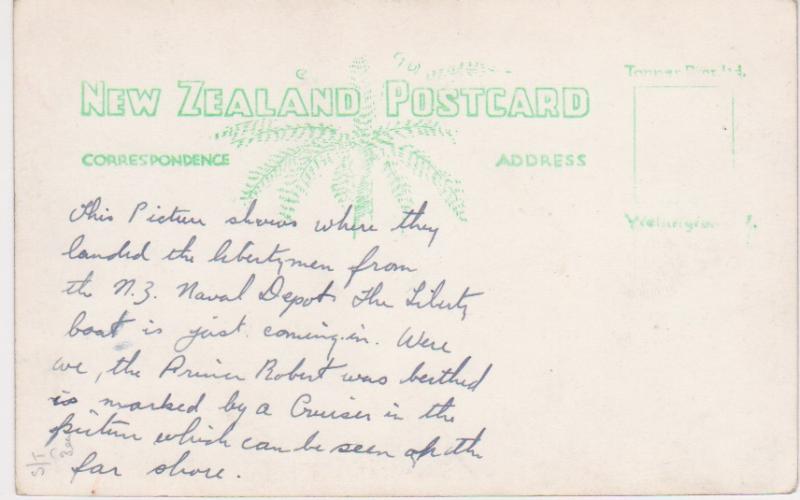 NEW ZEALAND POSTCARD
CORRESPONDENCE ADDRESS
Tanner Bros. Ltd.
Wellington
This Picture shows where they
landed the libertymen from
the N.Z. Naval Depot. The Liberty
boat is just coming in. Were
we, the Prince Robert was berthed
is marked by a Cruiser in the
picture which can be seen off the
far shore.
S/T